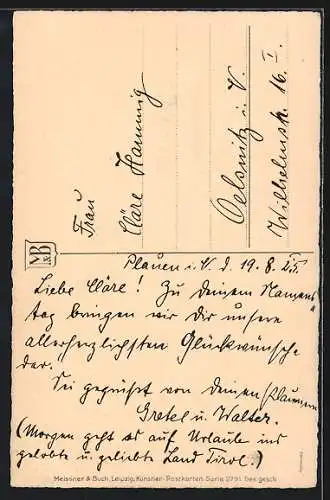 Frau
Cläre Hannig
Oelsnitz i. V.
Wilhelmstr. 16 I.
M&B
Plauen i. V. d. 19. 8. 25.
Liebe Cläre! Zu Deinem Namens
tag bringen wir Dir unsere
allerherzlichsten Glückwünsche
dar.
Sei gegrüßt von Deinen
Gretel u. Walter.
(Morgen geht es auf Urlaub ins
gelobte u. geliebte Land Tirol!)
Meissner & Buch, Leipzig, Künstler-Postkarten Serie 2791. Ges. gesch.